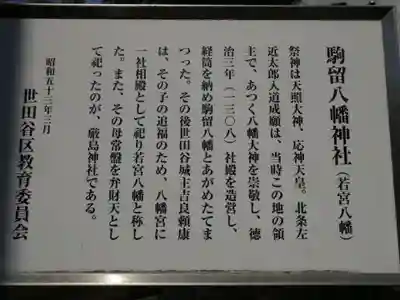 駒留八幡神社(若宮八幡)
祭神は天照大神、応神天皇。北条左
近太郎入道成願は、当時この地の領
主で、あつく八幡大神を崇敬し、徳
治三年(一三〇八)社殿を造営し、
経筒を納め駒留八幡とあがめたてま
つった。その後世田谷城主吉良頼康
は、その子の追福のため、八幡宮に
一社相殿として祀り若宮八幡と称し
た。また、その母常盤を弁財天とし
て祀ったのが、厳島神社である。
昭和五十三年三月
世田谷区教育委員会